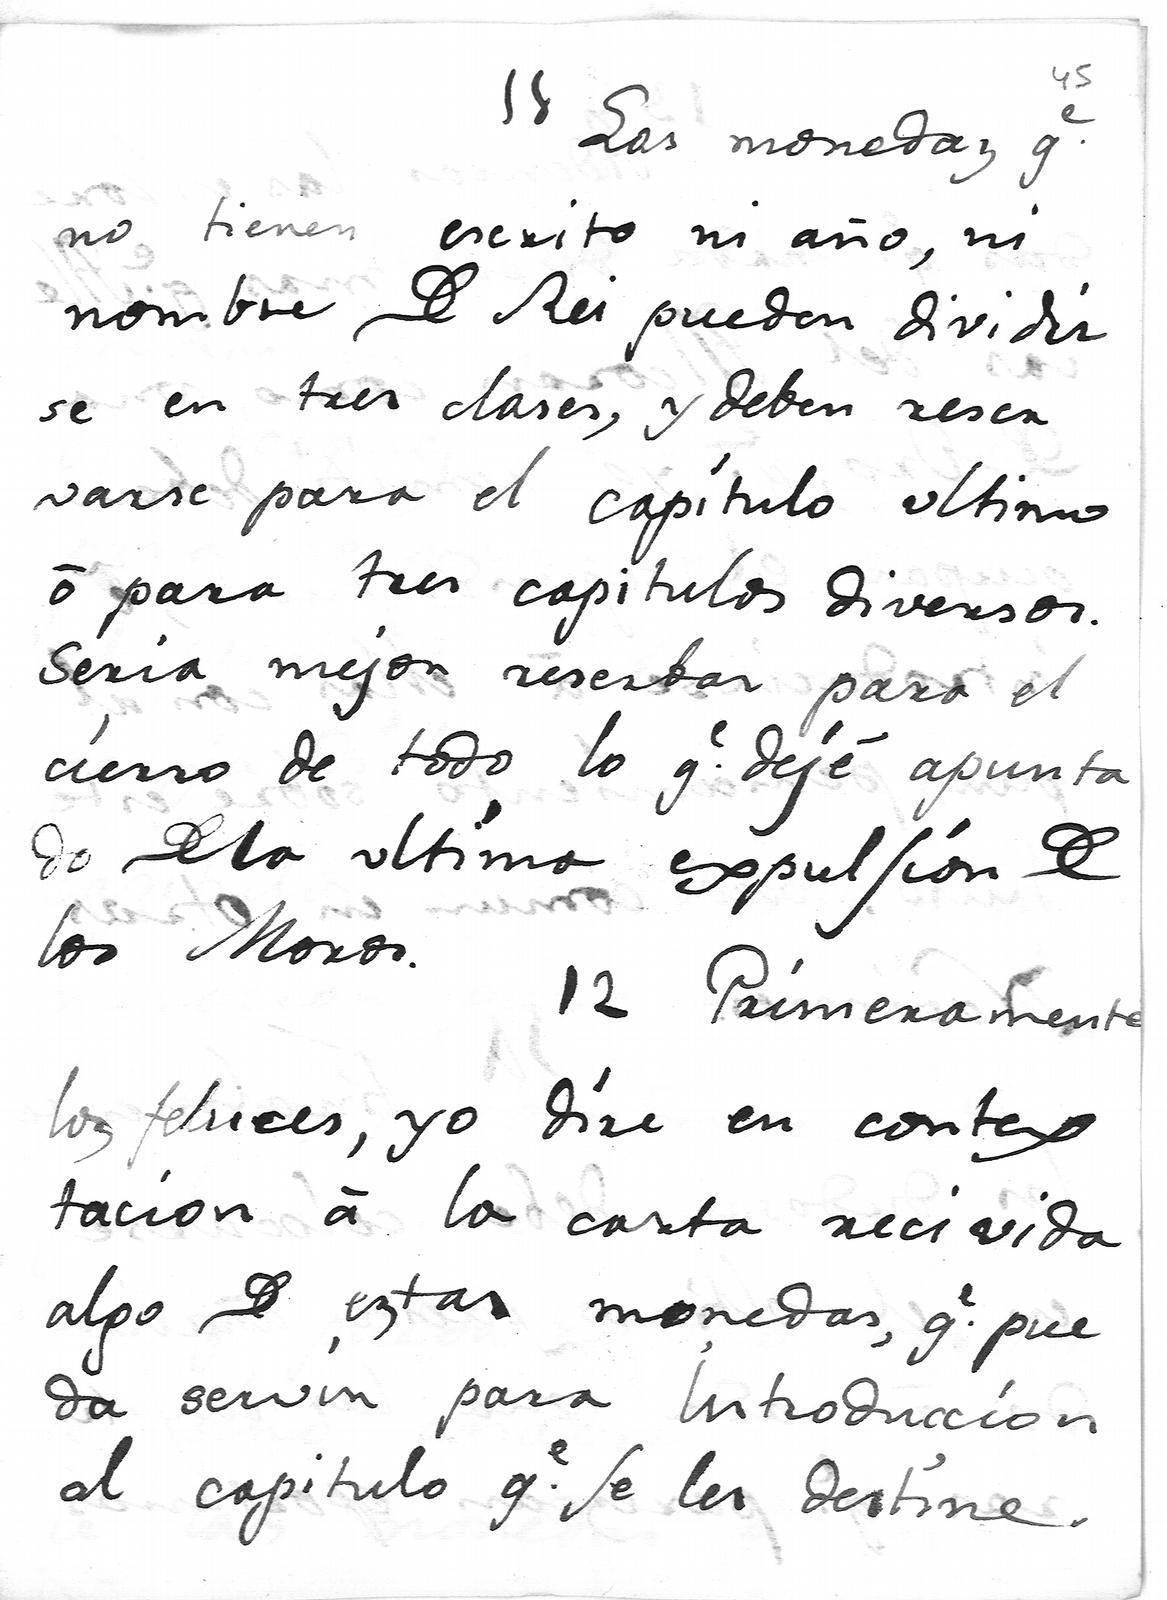 45
11 Las monedas q.e
no tienen escrito ni año, ni
nombre D Rei pueden dividir
se en tres clases, y deben reser
varse para el capítulo ultimo
ō para tres capitulos diversos.
Seria mejor reserbar para el
cierro de todo lo q.e dejé apunta
do D la ultima expulsión D
los Moros.
12 Primeramente
los felices, yo dire en contex
tacion ā la carta recivida
algo D estas monedas, q.e pue
da servir para Introduccion
al capitulo q.e se les destine.